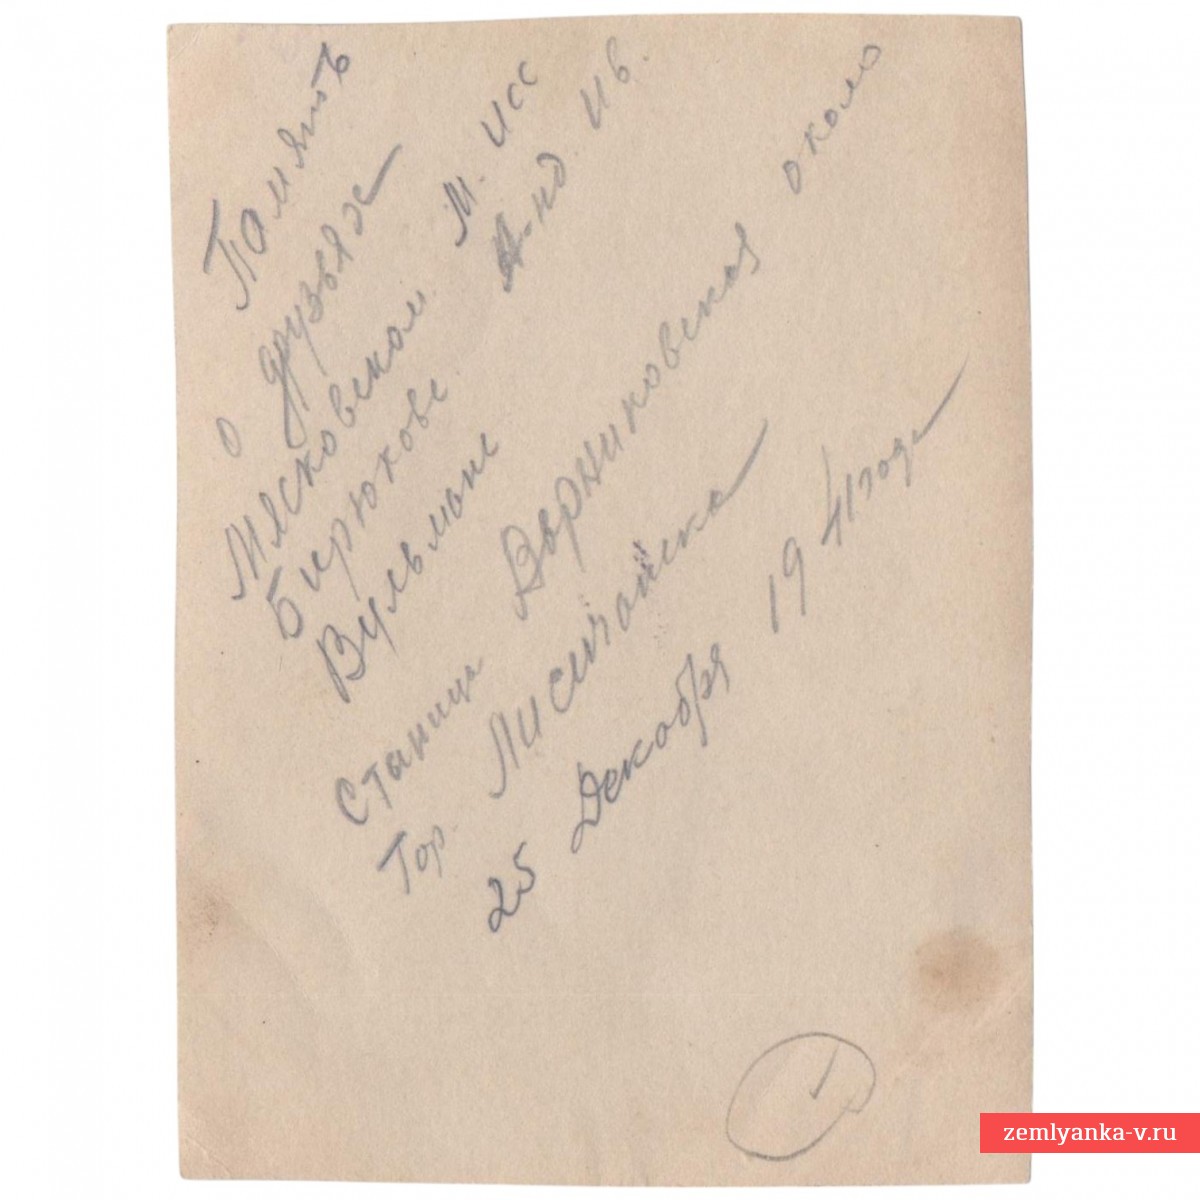 Память
о друзьях
Мясковском М. Исс
Бирюкове А-нд Ив.
Вульмане
Станица Ворниковская около
Гор. Лисичанска
25 Декабря 1941 года
zemlyanka-v.ru